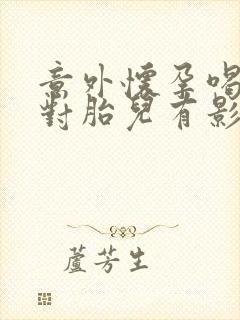 意外懷孕喝
對胎兒有影
蘆芳生